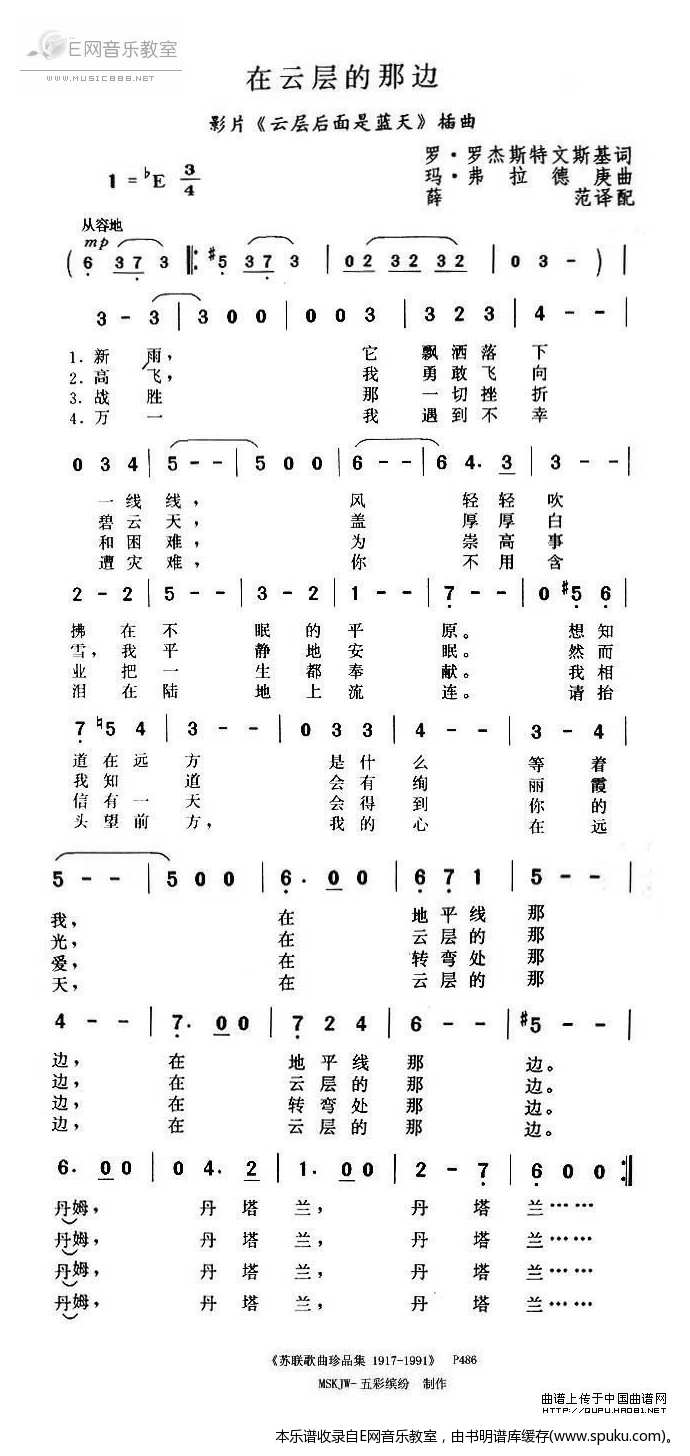 E网音乐教室
WWW.MUSIC888.NET
在云层的那边
影片《云层后面是蓝天》插曲
罗·罗杰斯特文斯基词
1 = ♭E 3/4
玛·弗拉德庚曲
薛范译配
从容地
mp
( 6 3 7 3 |: #5 3 7 3 | 0 2 3 2 3 2 | 0 3 - ) |
3 - 3 | 3 0 0 | 0 0 3 | 3 2 3 | 4 - - |
1. 新雨， 它飘洒落下
2. 高飞， 我勇敢飞向
3. 战胜 那一切挫折
4. 万一 我遇到不幸
0 3 4 | 5 - - | 5 0 0 | 6 - - | 6 4. 3 | 3 - - |
一线线， 风轻轻吹
碧云天， 盖厚厚白
和困难， 为崇高事
遭灾难， 你不用含
2 - 2 | 5 - - | 3 - 2 | 1 - - | 7 - - | 0 #5 6 |
拂在不眠的平原。想知
雪，我平静地安眠。然而
业把一生都奉献。我相
泪在陆地上流连。请抬
7 ♮5 4 | 3 - - | 0 3 3 | 4 - - | 3 - 4 |
道在远方 是什么等着
我知道 会有绚丽霞
信有一天 会得到你的
头望前方， 我的心在远
5 - - | 5 0 0 | 6. 0 0 | 6 7 1 | 5 - - |
我， 在地平线那
光， 在云层的那
爱， 在转弯处那
天， 在云层的那
4 - - | 7. 0 0 | 7 2 4 | 6 - - | #5 - - |
边， 在地平线那边。
边， 在云层的那边。
边， 在转弯处那边。
边， 在云层的那边。
6. 0 0 | 0 4. 2 | 1. 0 0 | 2 - 7 | 6 0 0 :|
丹姆， 丹塔兰， 丹塔兰……
丹姆， 丹塔兰， 丹塔兰……
丹姆， 丹塔兰， 丹塔兰……
丹姆， 丹塔兰， 丹塔兰……
《苏联歌曲珍品集 1917-1991》 P486
MSKJW-五彩缤纷 制作
曲谱上传于中国曲谱网
HTTP://WWW.QUPU.HAO81.NET
本乐谱收录自E网音乐教室，由书明谱库缓存(www.spuku.com)。